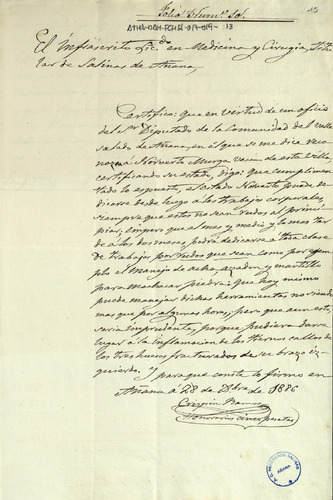 Folio Número 601.
15
ATHA-DAH-FCHSA-019-019-13
El Infrascrito Licdo en Medicina y Cirugia, Titu-
lar de Salinas de Añana,
Certifico: que en virtud de un oficio
del Sr Diputado de la Comunidad del valle
salado de Añana, en el que se me dice reco-
nozca Norverto Murga vecino de esta Villa,
certificando su estado, digo: que cumplimen-
tado lo espuesto, el citado Noverto puede de-
dicarse desde luego a los trabajos corporales,
siempre que estos no sean rudos al princi-
piar, que al mes y medio y lo mas tar-
de a los dos meses podrá dedicarse a toda clase
de trabajos por rudos que sean como por egem-
plo el manejo de acha, azadon y martillo
para machacar piedra; que hoy mismo
puede manejar dichas herramientas no siendo
mas que por algunas horas, pero que aun esto,
seria imprudente, porque pudiera darse
lugar á la inflamacion de los tiernos callos de
los tres huesos fracturados de su brazo iz-
quierdo. Y para que conste lo firmo en
Añana á 28 de Dbre de 1886
Crispin
Honorarios cinco pesetas
SALINAS
AÑANA